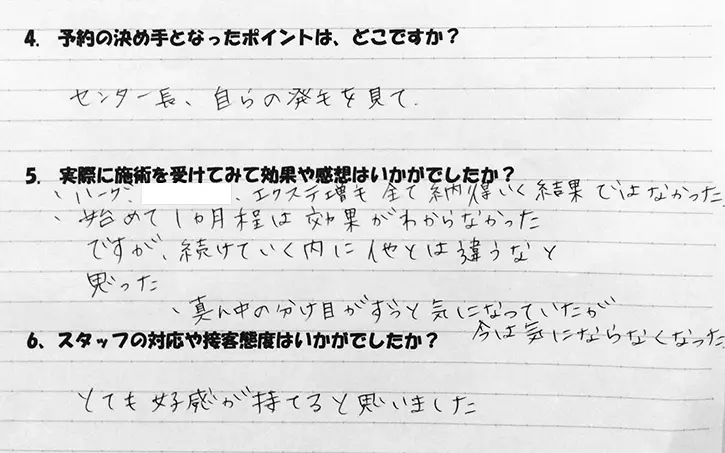 4. 予約の決め手となったポイントは、どこですか？
センター長、自らの発毛を見て.
5. 実際に施術を受けてみて効果や感想はいかがでしたか？
・ハーグ、 、エクステ増も全て納得いく結果ではなかった
・始めて1ヵ月程は効果がわからなかった
ですが、続けていく内に他とは違うなと
思った
・真ん中の分け目がずっと気になっていたが
今は気にならなくなった
6、スタッフの対応や接客態度はいかがでしたか？
とても好感が持てると思いました